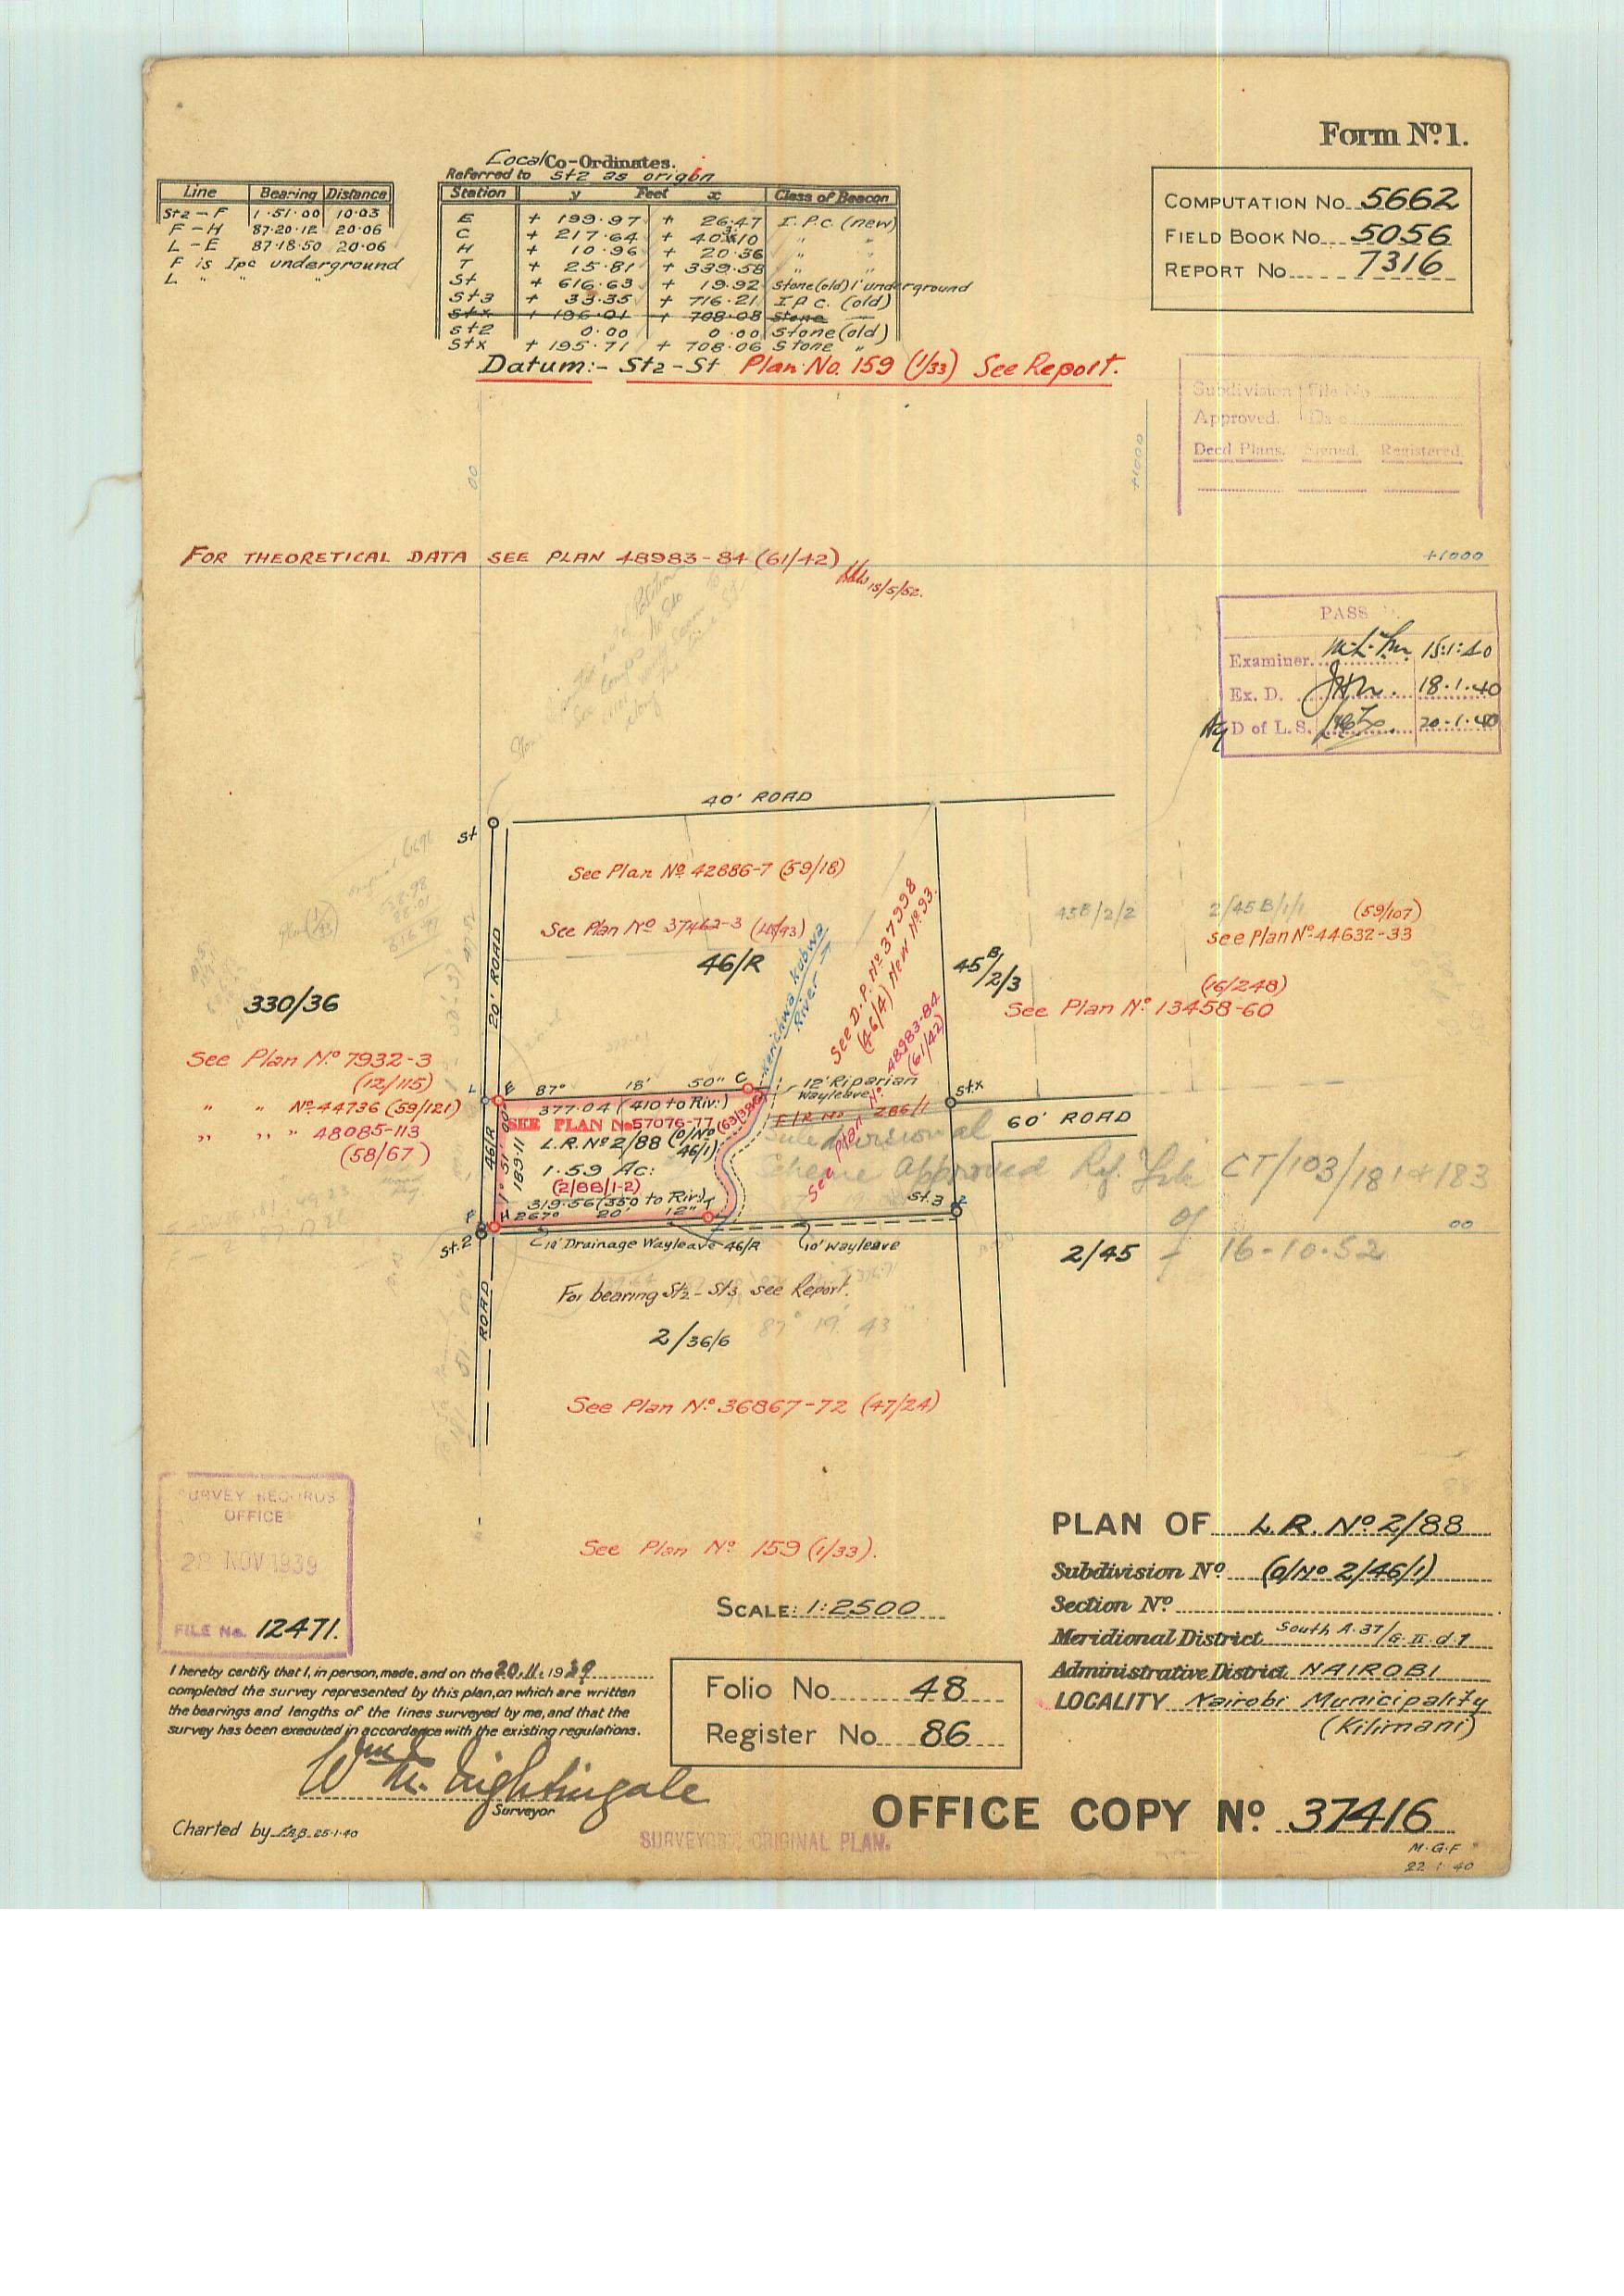 Form No. 1.
Local Co-Ordinates.
Referred to St2 as origin
Line Bearing Distance
St2 – F 1·51·00 10·03
F – H 87·20·12 20·06
L – E 87·18·50 20·06
F is Ipc underground
L " " "
Station y Feet x Class of Beacon
E + 199·97 + 26·47 I.P.C. (new)
C + 217·64 " "
H + 10·96 + 20·56 " "
T + 25·81 + 339·58 " "
St + 616·63 + 19·92 Stone (old) 1' underground
St3 + 33·35 + 716·21 I.P.C. (old)
Stx + 196·01 + 708·08 Stone
St2 0·00 0·00 Stone (old)
Stx + 195·71 + 708·06 Stone "
Datum:- St2-St Plan No. 159 (1/33) See Report.
COMPUTATION No. 5662
FIELD BOOK No. 5056
REPORT No. 7316
Subdivision File No
Approved. Da e
Deed Plans. Signed. Registered.
00
+1000
FOR THEORETICAL DATA SEE PLAN 48983-84 (61/42)
15/5/52.
+1000
PASS
Examiner. 15:1:40
Ex. D. 18·1·40
Ag D of L.S. 20·1·40
40' ROAD
St
See Plan No. 42886-7 (59/18)
See Plan No 37462-3
46/R
20' ROAD
Kirichwa Kubwa River
See D.P. No. 37998
(46/4) New No. 93.
See Plan No. 48983-84
(61/42)
45B/2/3
45B/2/2
2/45B/1/1
(59/107)
see Plan No. 44632-33
(16/248)
See Plan No. 13458-60
330/36
See Plan No. 7932-3
(12/115)
" " No. 44736 (59/121)
" " " 48085-113
(58/67)
L E 87° 18' 50" C
12' Riparian
Wayleave
Stx
377·04 (410 to Riv:)
F/R No 286/1
SEE PLAN No 57076-77
60' ROAD
L.R. No 2/88 (O/No 46/1)
46/R
1° 51' 00"
189·11
1·59 Ac:
(2/88/1-2)
Subdivisional
Scheme Approved Ref. File CT/103/181 & 183
of
16-10-52
319·56 (350 to Riv:) T
F H 267° 20' 12"
St.3
00
St.2
10' Drainage Wayleave 46/R
10' Wayleave
2/45
For bearing St2-St3 see Report.
87° 19' 43"
2/36/6
ROAD
See Plan No. 36867-72 (47/24)
SURVEY RECORDS
OFFICE
28 NOV 1939
FILE No. 12471.
See Plan No 159 (1/33).
SCALE: 1:2500
PLAN OF L.R. No 2/88
Subdivision No (O/No 2/46/1)
Section No
Meridional District South A·37/G·II·d·1
Administrative District NAIROBI
LOCALITY Nairobi Municipality
(Kilimani)
I hereby certify that I, in person, made, and on the 20.11.1939
completed the survey represented by this plan, on which are written
the bearings and lengths of the lines surveyed by me, and that the
survey has been executed in accordance with the existing regulations.
Wm. Nightingale
Surveyor
Charted by 25·1·40
Folio No. 48
Register No. 86
SURVEYORS ORIGINAL PLAN.
OFFICE COPY No. 37416
M·G·F
22·1·40